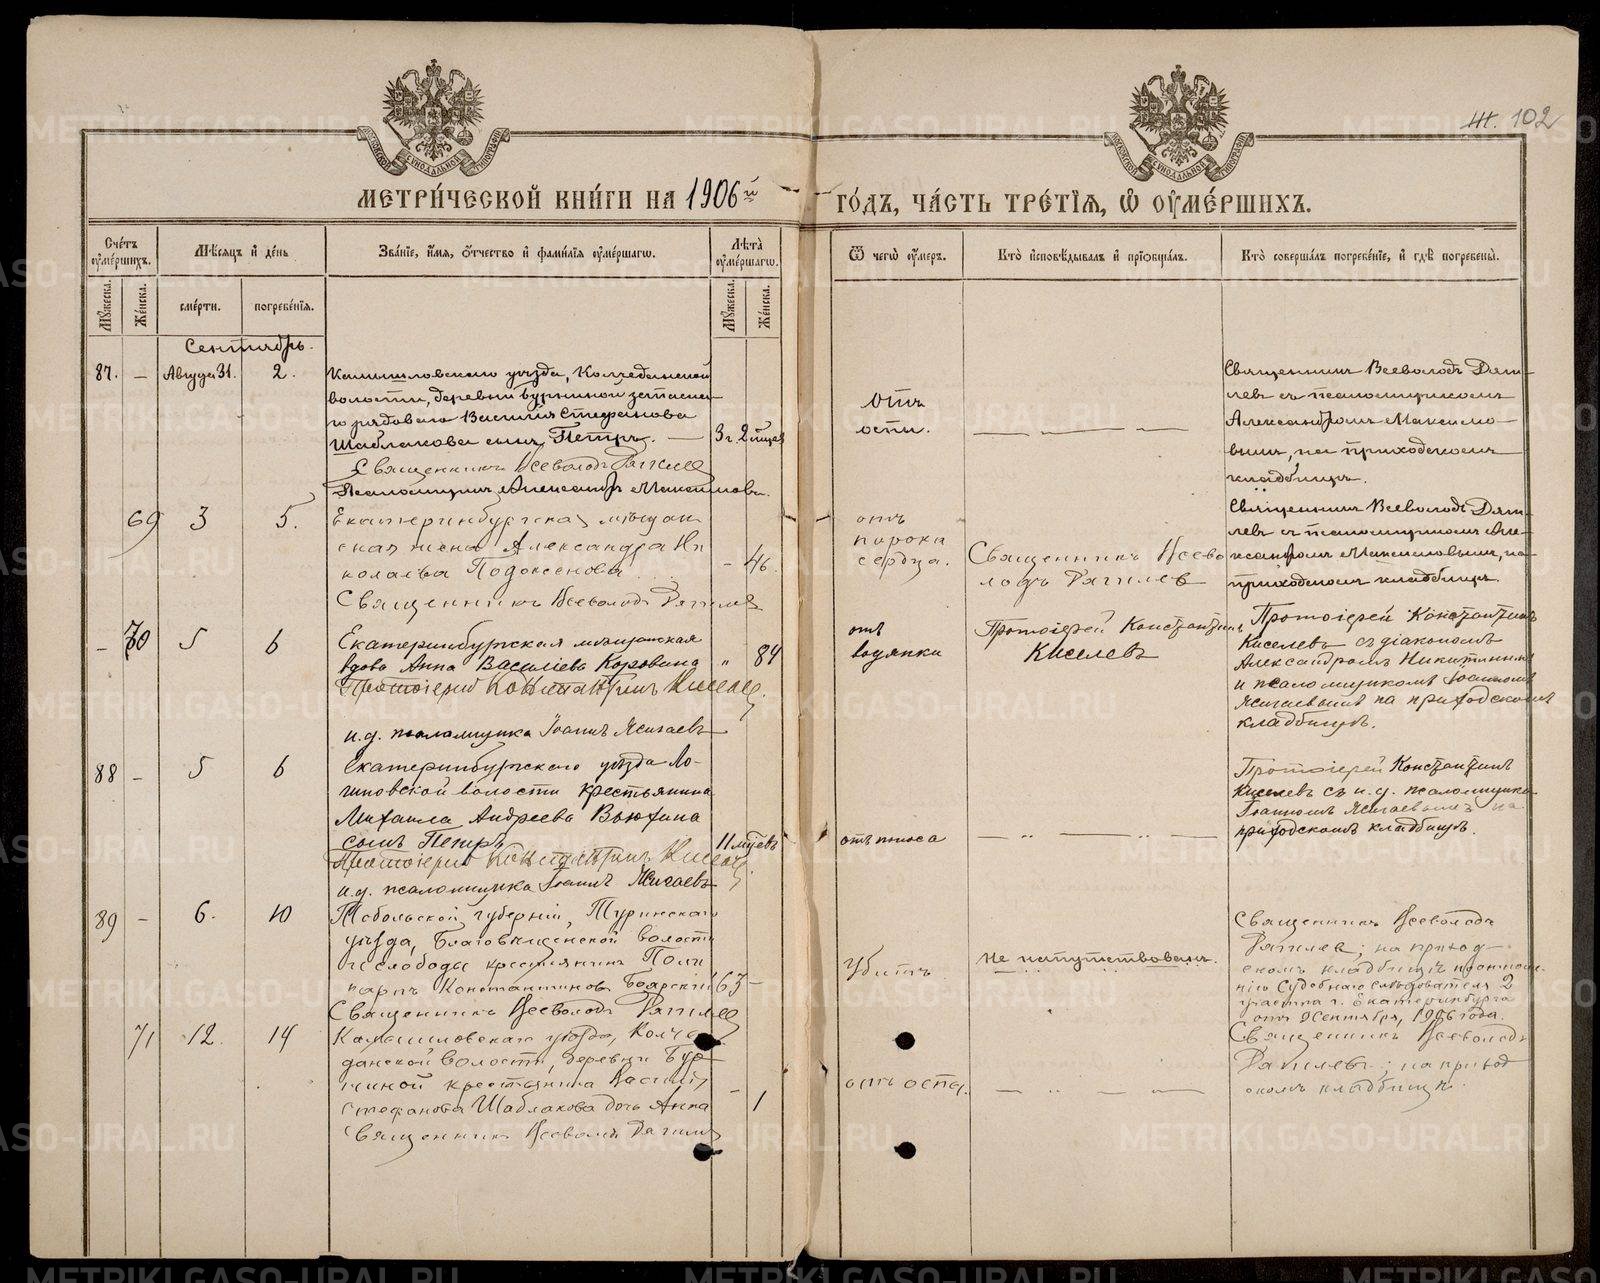 Ж. 102
МЕТРИ́ЧЕСКОЙ КНИ́ГИ НА 1906й
ГО́ДЪ, ЧА́СТЬ ТРЕ́ТІЯ, Ѡ ОУМЕ́РШИХЪ.
Сче́тъ оуме́ршихъ.
Мѣ́сяцъ и де́нь
Зва́ніе, и́мя, о́тчество и фами́лія оуме́ршагѡ.
Лѣ́та оуме́ршагѡ.
Ѿ чегѡ̀ оу́меръ.
Кто̀ исповѣ́дывалъ и пріобща́лъ.
Кто̀ соверша́лъ погребе́ніе, и гдѣ̀ погребены̀.
Му́жеска.
Же́нска.
сме́рти.
погребе́нія.
Му́жеска.
Же́нска.
Сентябрь.
87. – Августа 31. 2.
Камышловскаго уѣзда, Колчеданской
волости, деревни Бурниной запасна-
го рядоваго Василія Стефанова
Шаблакова сынъ Петръ. —
3 г. 2 мѣсяц
Священникъ Всеволодъ
Псаломщикъ Александръ Максимовъ.
Отъ
оспы.
Священникъ Всеволодъ
съ псаломщикомъ
Александромъ Максимо-
вымъ, на приходскомъ
кладбищѣ.
69 3 5.
Екатеринбургская мѣщан
ская жена Александра Ни
колаева Подоксенова
– 46.
Священникъ Всеволодъ
отъ
порока
сердца.
Священникъ Всево
лодъ
Священникъ Всеволодъ
съ псаломщикомъ Але-
ксандромъ Максимовымъ, на
приходскомъ кладбищѣ.
– 70 5 6
Екатеринбургская мѣщанская
вдова Анна Васильева Коровина
" 84
Протоіерей Константинъ Киселевъ.
и.д. псаломщика Іоаннъ
отъ
водянки
Протоіерей Константинъ
Киселевъ
Протоіерей Константинъ
Киселевъ съ діакономъ
Александромъ Никитинымъ
и псаломщикомъ Іоанномъ
на приходскомъ
кладбищѣ.
88 – 5 6
Екатеринбургскаго уѣзда Ло-
гиновской волости крестьянина
Михаила Андреева Вьюхина
сынъ Петръ
11 мѣсяцевъ
Протоіерей Константинъ Киселевъ
и.д. псаломщика Іоаннъ
отъ поноса
Протоіерей Константинъ
Киселевъ съ и.д. псаломщика
Іоанномъ на
приходскомъ кладбищѣ.
89 – 6. 10
Тобольской губерніи, Туринскаго
уѣзда, Благовѣщенской волости
и слободы крестьянинъ Поли
карпъ Константиновъ Боярскій
63 –
Священникъ Всеволодъ
Убитъ.
Не напутствованъ.
Священникъ Всеволодъ
; на приход-
скомъ кладбищѣ по отноше-
нію Судебнаго слѣдователя 2
участка г. Екатеринбурга
отъ 9 Сентября, 1906 года.
71 12. 14
Камышловскаго уѣзда, Колче
данской волости, деревни Бур
ниной крестьянина Василія
Стефанова Шаблакова дочь Анна
– 1
Священникъ Всеволодъ
отъ оспы.
Священникъ Всеволодъ
; на приход
скомъ кладбищѣ.
METRIKI.GASO-URAL.RU